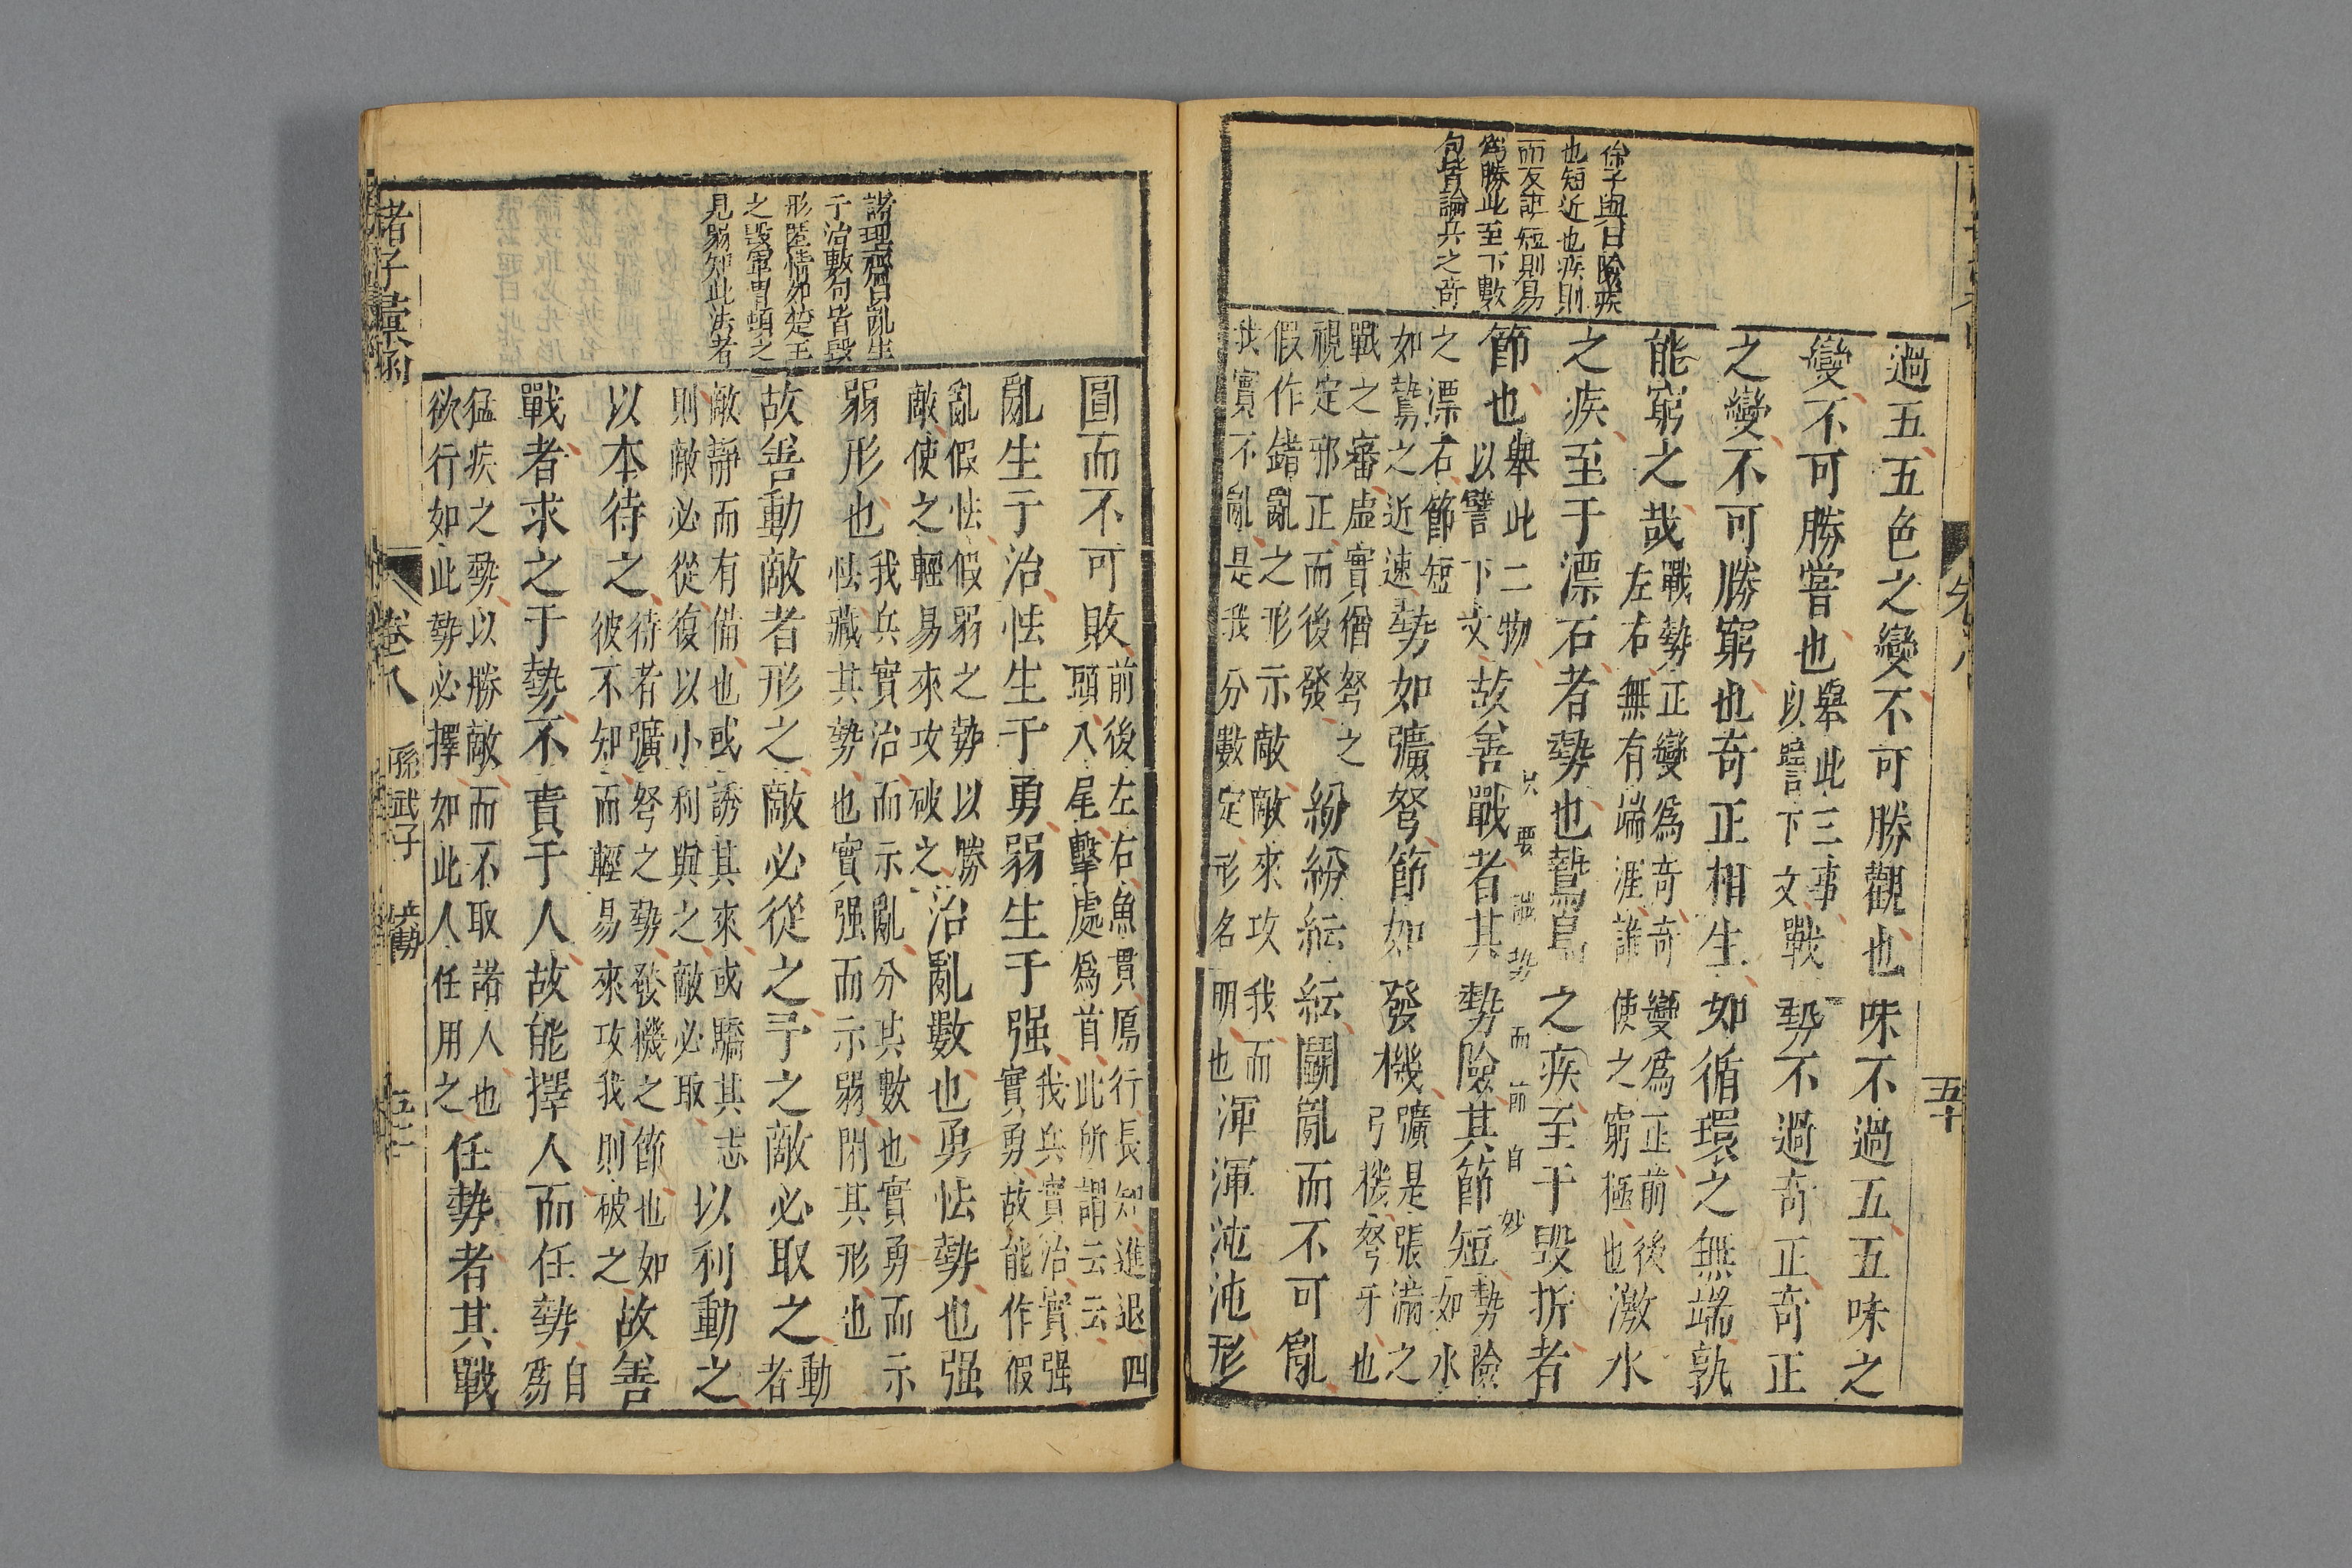 徐子與曰險疾
也短近也疾則
而友詎短則易
爲勝此至下數
句皆論兵之奇
過五五色之變不可勝觀也味不過五五味之
變不可勝嘗也舉此三事以譬言下文戰勢不過奇正奇正
之變不可勝窮也奇正相生如循環之無端孰
能窮之哉戰勢正變爲奇奇變爲正前後左右無有端涯誰使之窮極也激水
之疾至于漂石者勢也鷙鳥之疾至于毀折者
節也舉此二物以譬下文故善戰者其勢險其節短勢險如水
只要識勢而節自妙
之漂石節短如鷙之近速勢如彍弩節如發機彍是張滿之弓機弩牙也
戰之審虛實猶弩之視定邪正而後發紛紛紜紜鬭亂而不可亂
假作錯亂之形示敵敵來攻我而其實不亂是我分數定形名明也渾渾沌沌形
五十
諸理齋曰亂生
于治數句皆毀
形匿情如楚王
之毀軍冒頓之
見弱知此法者
圓而不可敗前後左右魚貫鴈行長短進退四頭八尾擊處爲首此所謂云云
亂生于治怯生于勇弱生于强我兵實治實强實勇故能作假
亂假怯假弱之勢以勝敵使之輕易來攻破之治亂數也勇怯勢也强
弱形也我兵實治而示亂分其數也實勇而示怯藏其勢也實强而示弱閉其形也
故善動敵者形之敵必從之予之敵必取之動者
敵靜而有備也或誘其來或驕其志則敵必從復以小利與之敵必取以利動之
以本待之待者彍弩之勢發機之節也如彼不知而輕易來攻我則破之故善
戰者求之于勢不責于人故能擇人而任勢自爲
猛疾之勢以勝敵而不取諸人也欲行如此勢必擇如此人任用之任勢者其戰
諸子彙函
卷八
孫武子
勢